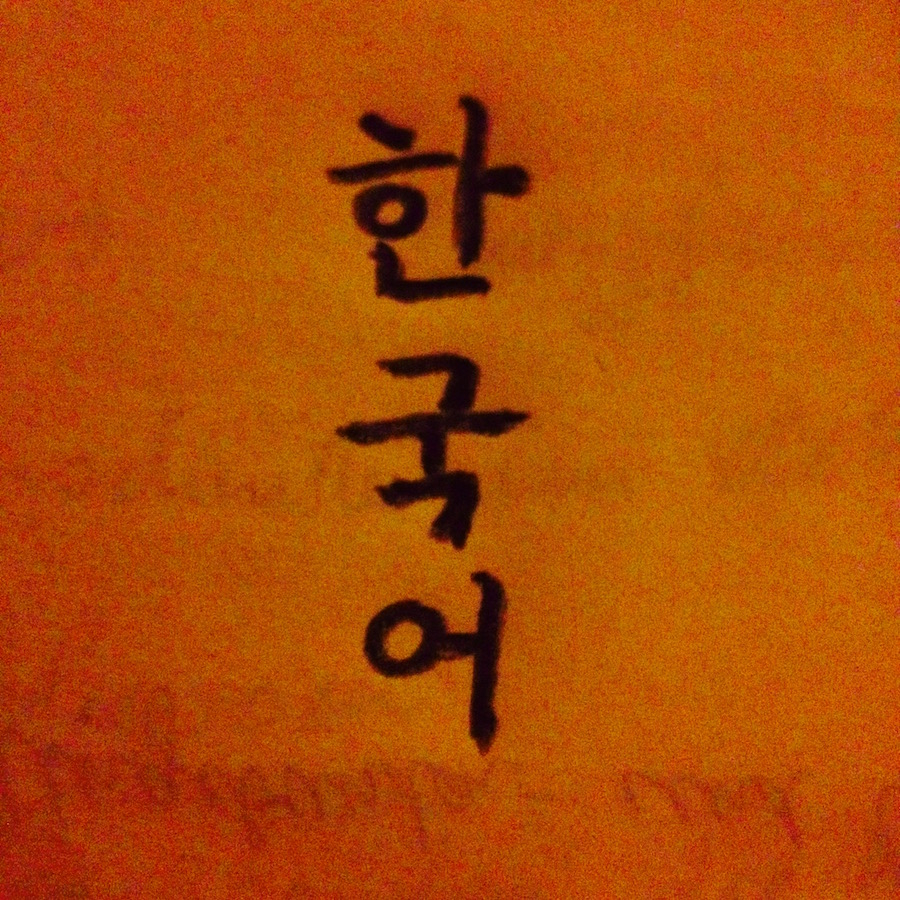 한
국
어